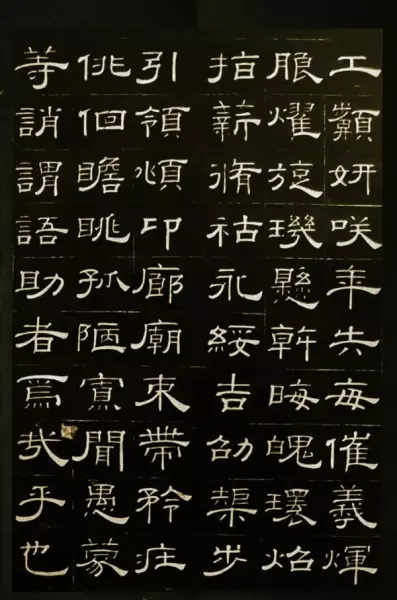 工顰妍咲年矢每催羲煇
朖耀旋璣懸斡晦魄環炤
指薪脩祜永綏吉劭榘步
引領頫卬廊廟束帶矜庄
俳佪瞻眺孤陋寡聞愚蒙
等誚謂語助者焉哉乎也